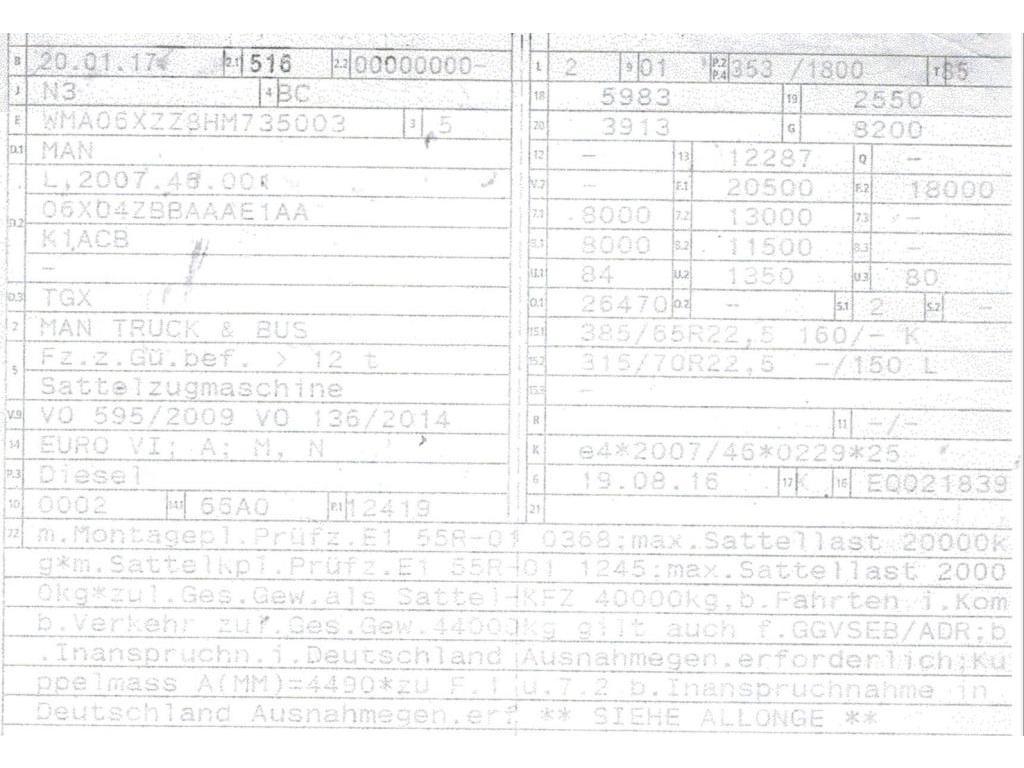 B 20.01.17 2.1 516 2.2 00000000-
J N3 4 BC
E WMA06XZZ8HM735003 3 5
D.1 MAN
L,2007.46.00
D.2 06X04ZBBAAAE1AA
K1ACB
-
D.3 TGX
2 MAN TRUCK & BUS
5 Fz.z.Gü.bef. > 12 t
Sattelzugmaschine
V.9 VO 595/2009 VO 136/2014
14 EURO VI; A; M, N
P.3 Diesel
10 0002 14.1 66A0 P.1 12419
L 2 9 01 P.2 P.4 353 /1800 T 85
18 5983 19 2550
20 3913 G 8200
12 - 13 12287 Q -
V.7 - F.1 20500 F.2 18000
7.1 8000 7.2 13000 7.3 -
8.1 8000 8.2 11500 8.3 -
U.1 84 U.2 1350 U.3 80
O.1 26470 O.2 - S.1 2 S.2 -
15.1 385/65R22,5 160/- K
15.2 315/70R22,5 -/150 L
15.3 -
R 11 -/-
K e4*2007/46*0229*25
6 19.08.16 17 K 16 EQ021839
21
22 m.Montagepl.Prüfz.E1 55R-01 0368;max.Sattellast 20000k
g*m.Sattelkpl.Prüfz.E1 55R-01 1245:max.Sattellast 2000
0kg*zul.Ges.Gew.als Sattel-KFZ 40000kg,b.Fahrten i.Kom
b.Verkehr zul.Ges.Gew.44000kg gilt auch f.GGVSEB/ADR;b
.Inanspruchn.i.Deutschland Ausnahmegen.erforderlich;Ku
ppelmass A(MM)=4490*zu F.1 u.7.2 b.Inanspruchnahme in
Deutschland Ausnahmegen.erf ** SIEHE ALLONGE **